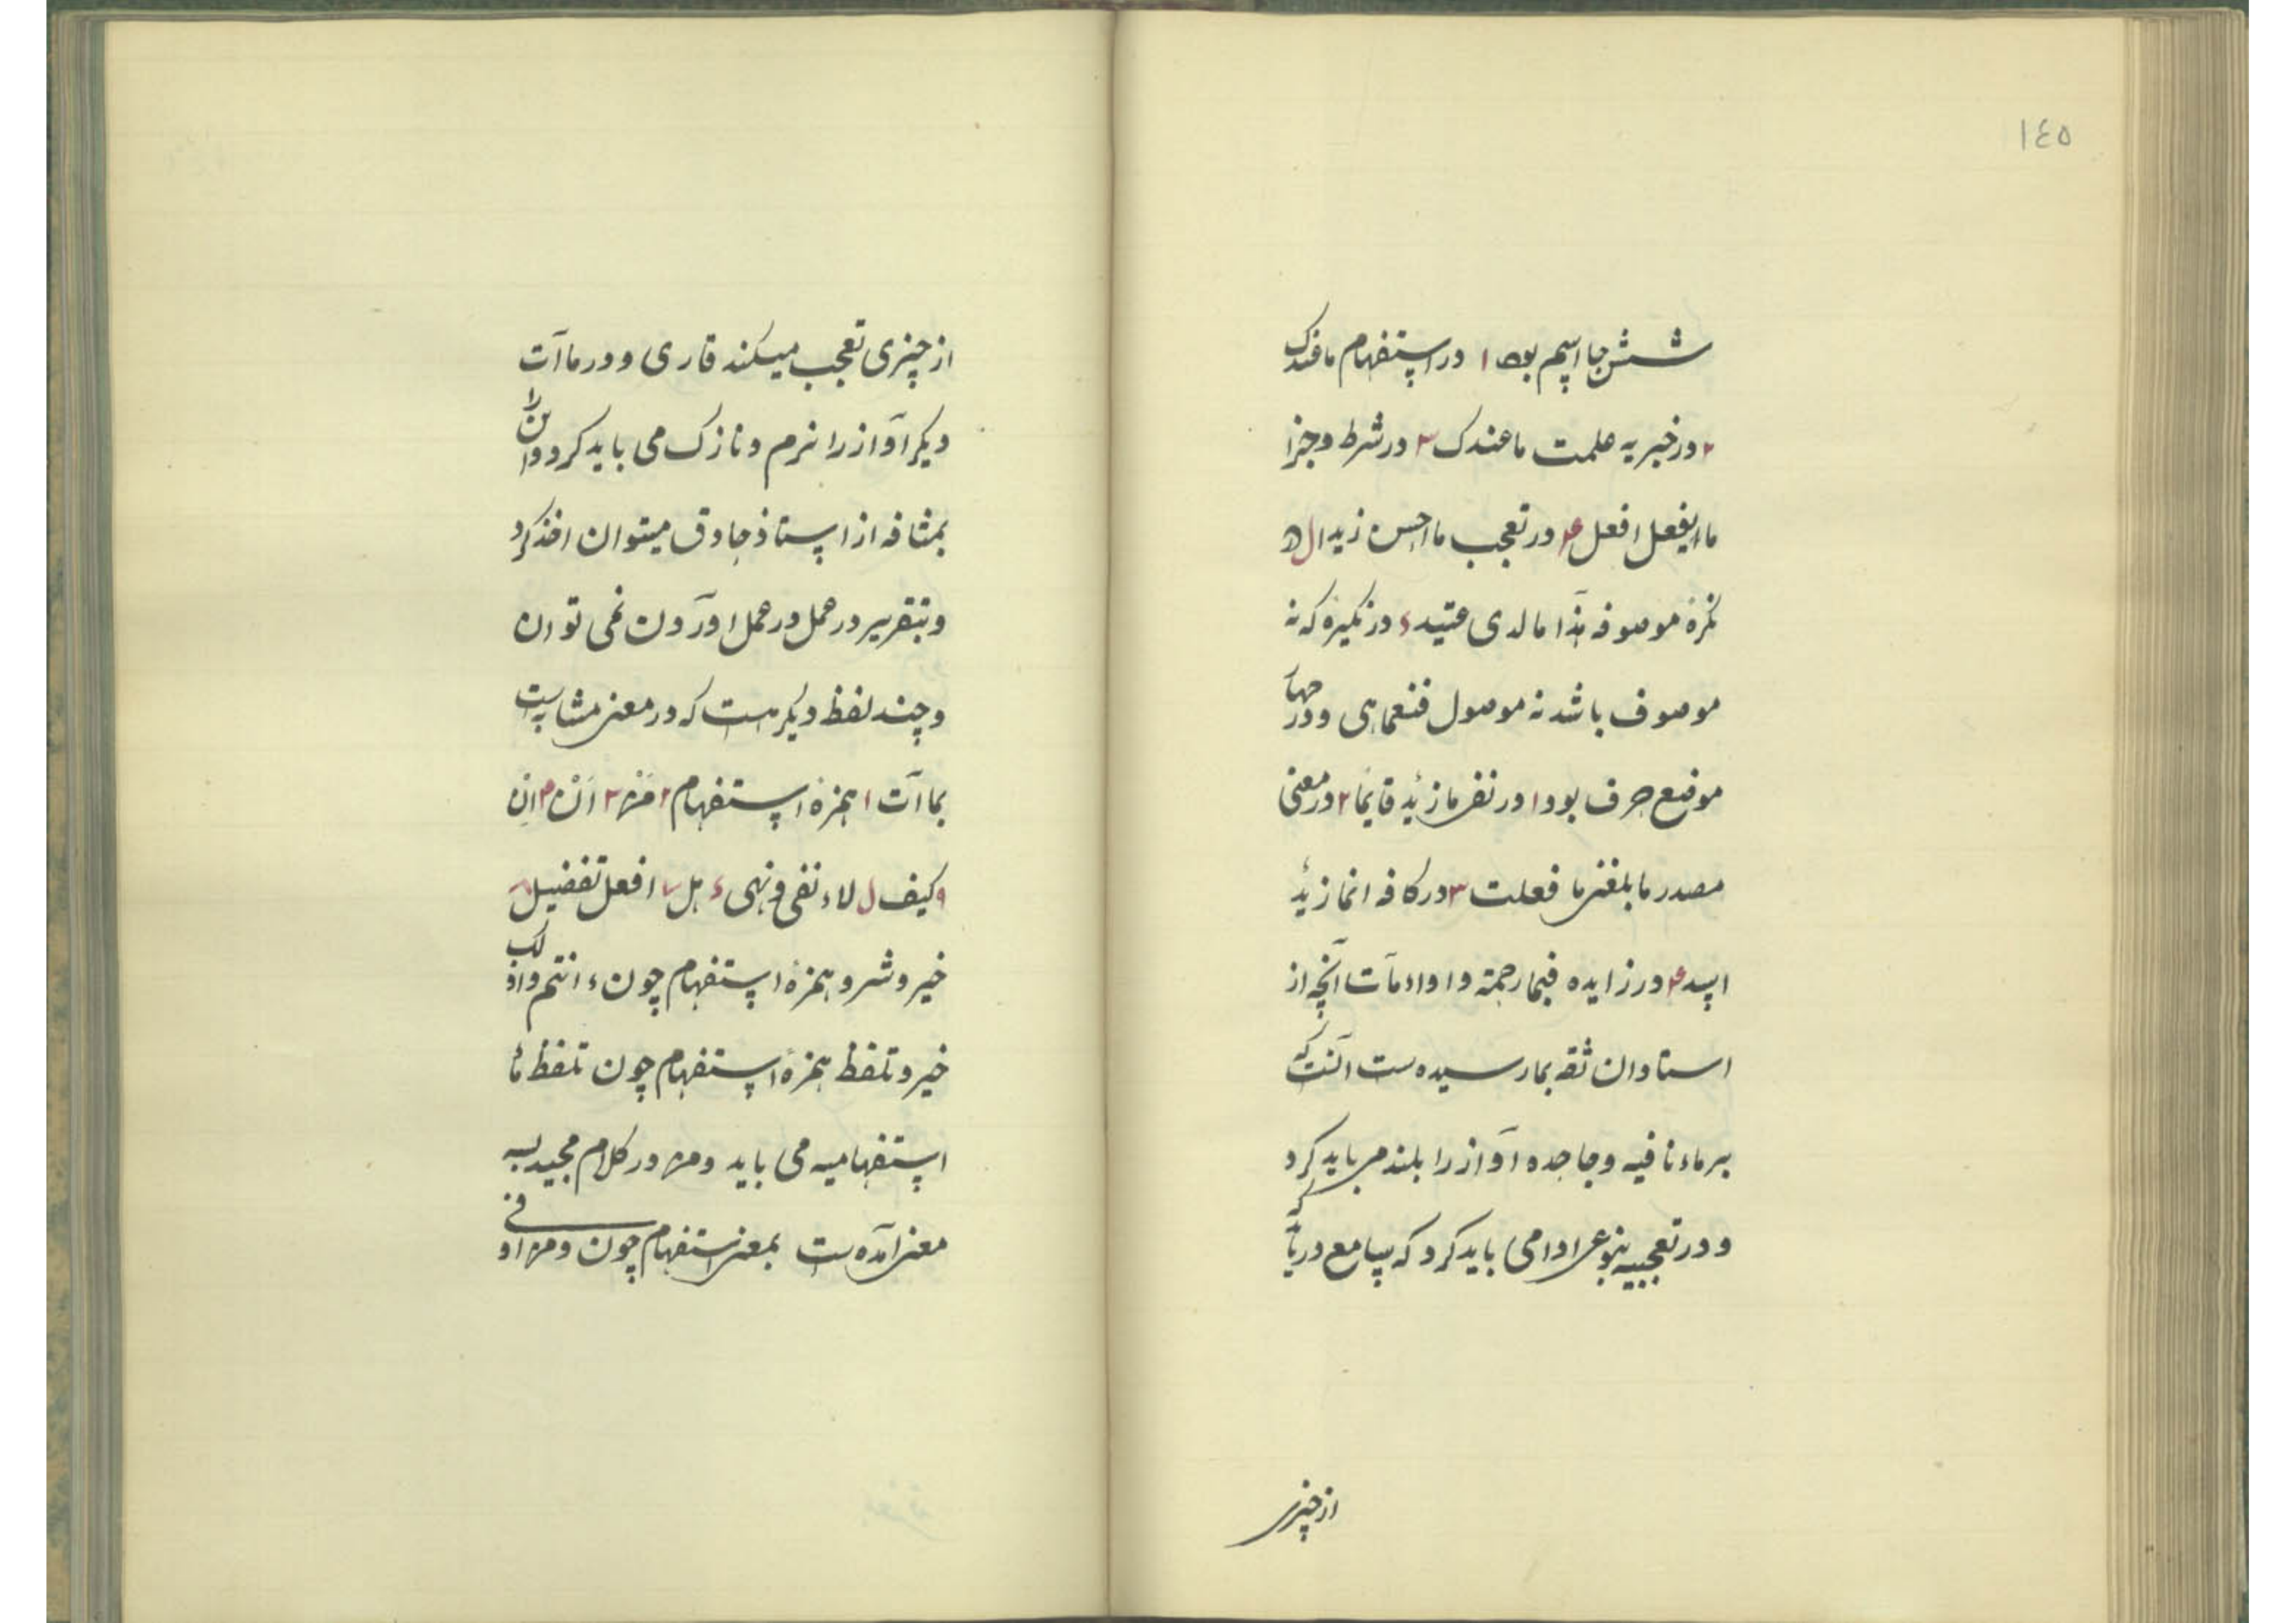 ١٤٥
شش جا اسم بود ۱ در استفهام ما عندک
۲ در خبریه علمت ما عندک ۳ در شرط و جزا
ما یفعل افعل ۴ در تعجب ما احسن زیدا ۵
نکره موصوفه هذا ما لدی عتید ۶ در نکیره که نه
موصوف باشد نه موصول فنعما هی و در چهار
موضع حرف بود ۱ در نفی ما زید قایما ۲ در معنی
مصدر ما بلغنی ما فعلت ۳ در کافه انما زید
اسد ۴ در زایده فبما رحمة و اداء مآت آنچه از
استادان ثقه بما رسیده ست آنست که
بر ماء نافیه و جاحده آواز را بلند می باید کرد
و در تعجبیه بنوعی ادا می باید کرد که سامع دریابد که
از چیزی
از چیزی تعجب میکند قاری و در ما آت
دیکر آواز را نرم و نازک می باید کرد و این را
بمشافه از استاذ حاذق میتوان اخذ کرد
و بتقریر در عمل در عمل آوردن نمی توان
و چند لفظ دیکر هست که در معنی مشابهست
بما آت ۱ همزهٔ استفهام ۲ مَنْ ۳ اَنْ ۴ اِن
کیف لاء نفی و نهی هل افعل تفضیل
خیر و شر و همزهٔ استفهام چون ء انتم و اذلک
خیر و تلفظ همزهٔ استفهام چون تلفظ ماء
استفهامیه می باید و من در کلام مجید بسه
معنی آمده ست بمعنی استفهام چون و من اوفی